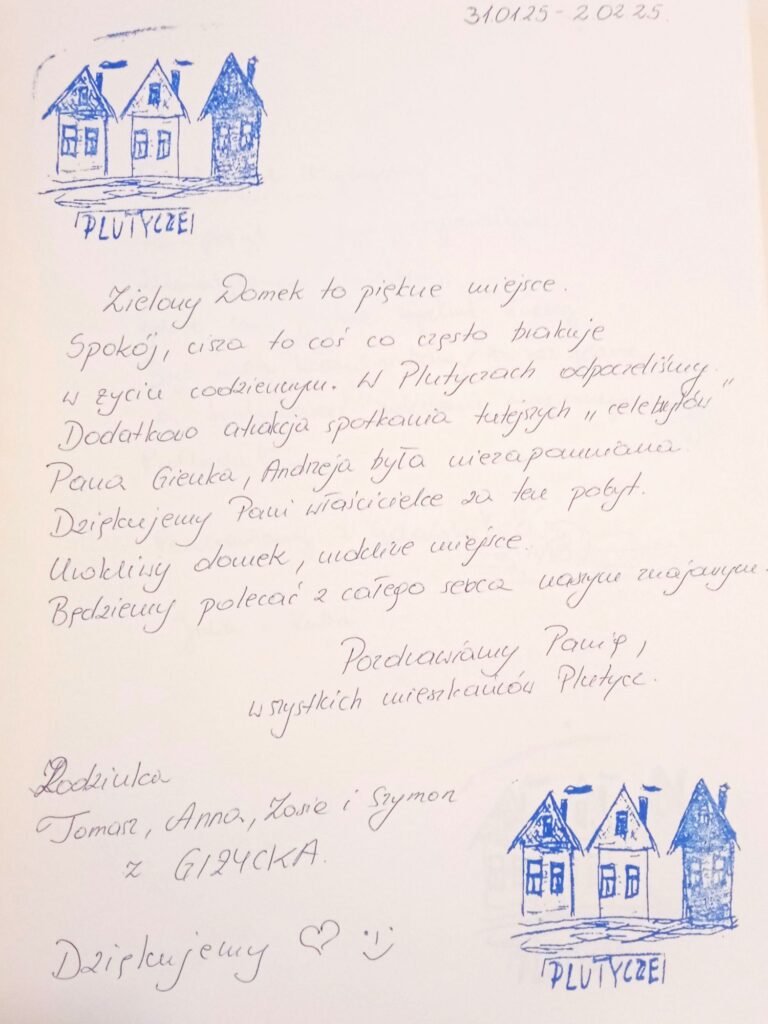 31.01.25 - 2.02.25
PLUTYCZE
Zielony Domek to piękne miejsce.
Spokój, cisza to coś co często brakuje
w życiu codziennym. W Plutyczach odpoczeliśmy.
Dodatkowo atrakcja spotkania tutejszych „celebrytów"
Pana Gienka, Andrzeja była niezapomniana.
Dziękujemy Pani właścicielce za ten pobyt.
Urokliwy domek, urokliwe miejsce.
Będziemy polecać z całego serca naszym znajomym.
Pozdrawiamy Panią,
wszystkich mieszkańców Plutycz.
Rodzinka
Tomasz, Anna, Zosia i Szymon
z GIŻYCKA.
Dziękujemy ♡ :)
PLUTYCZE